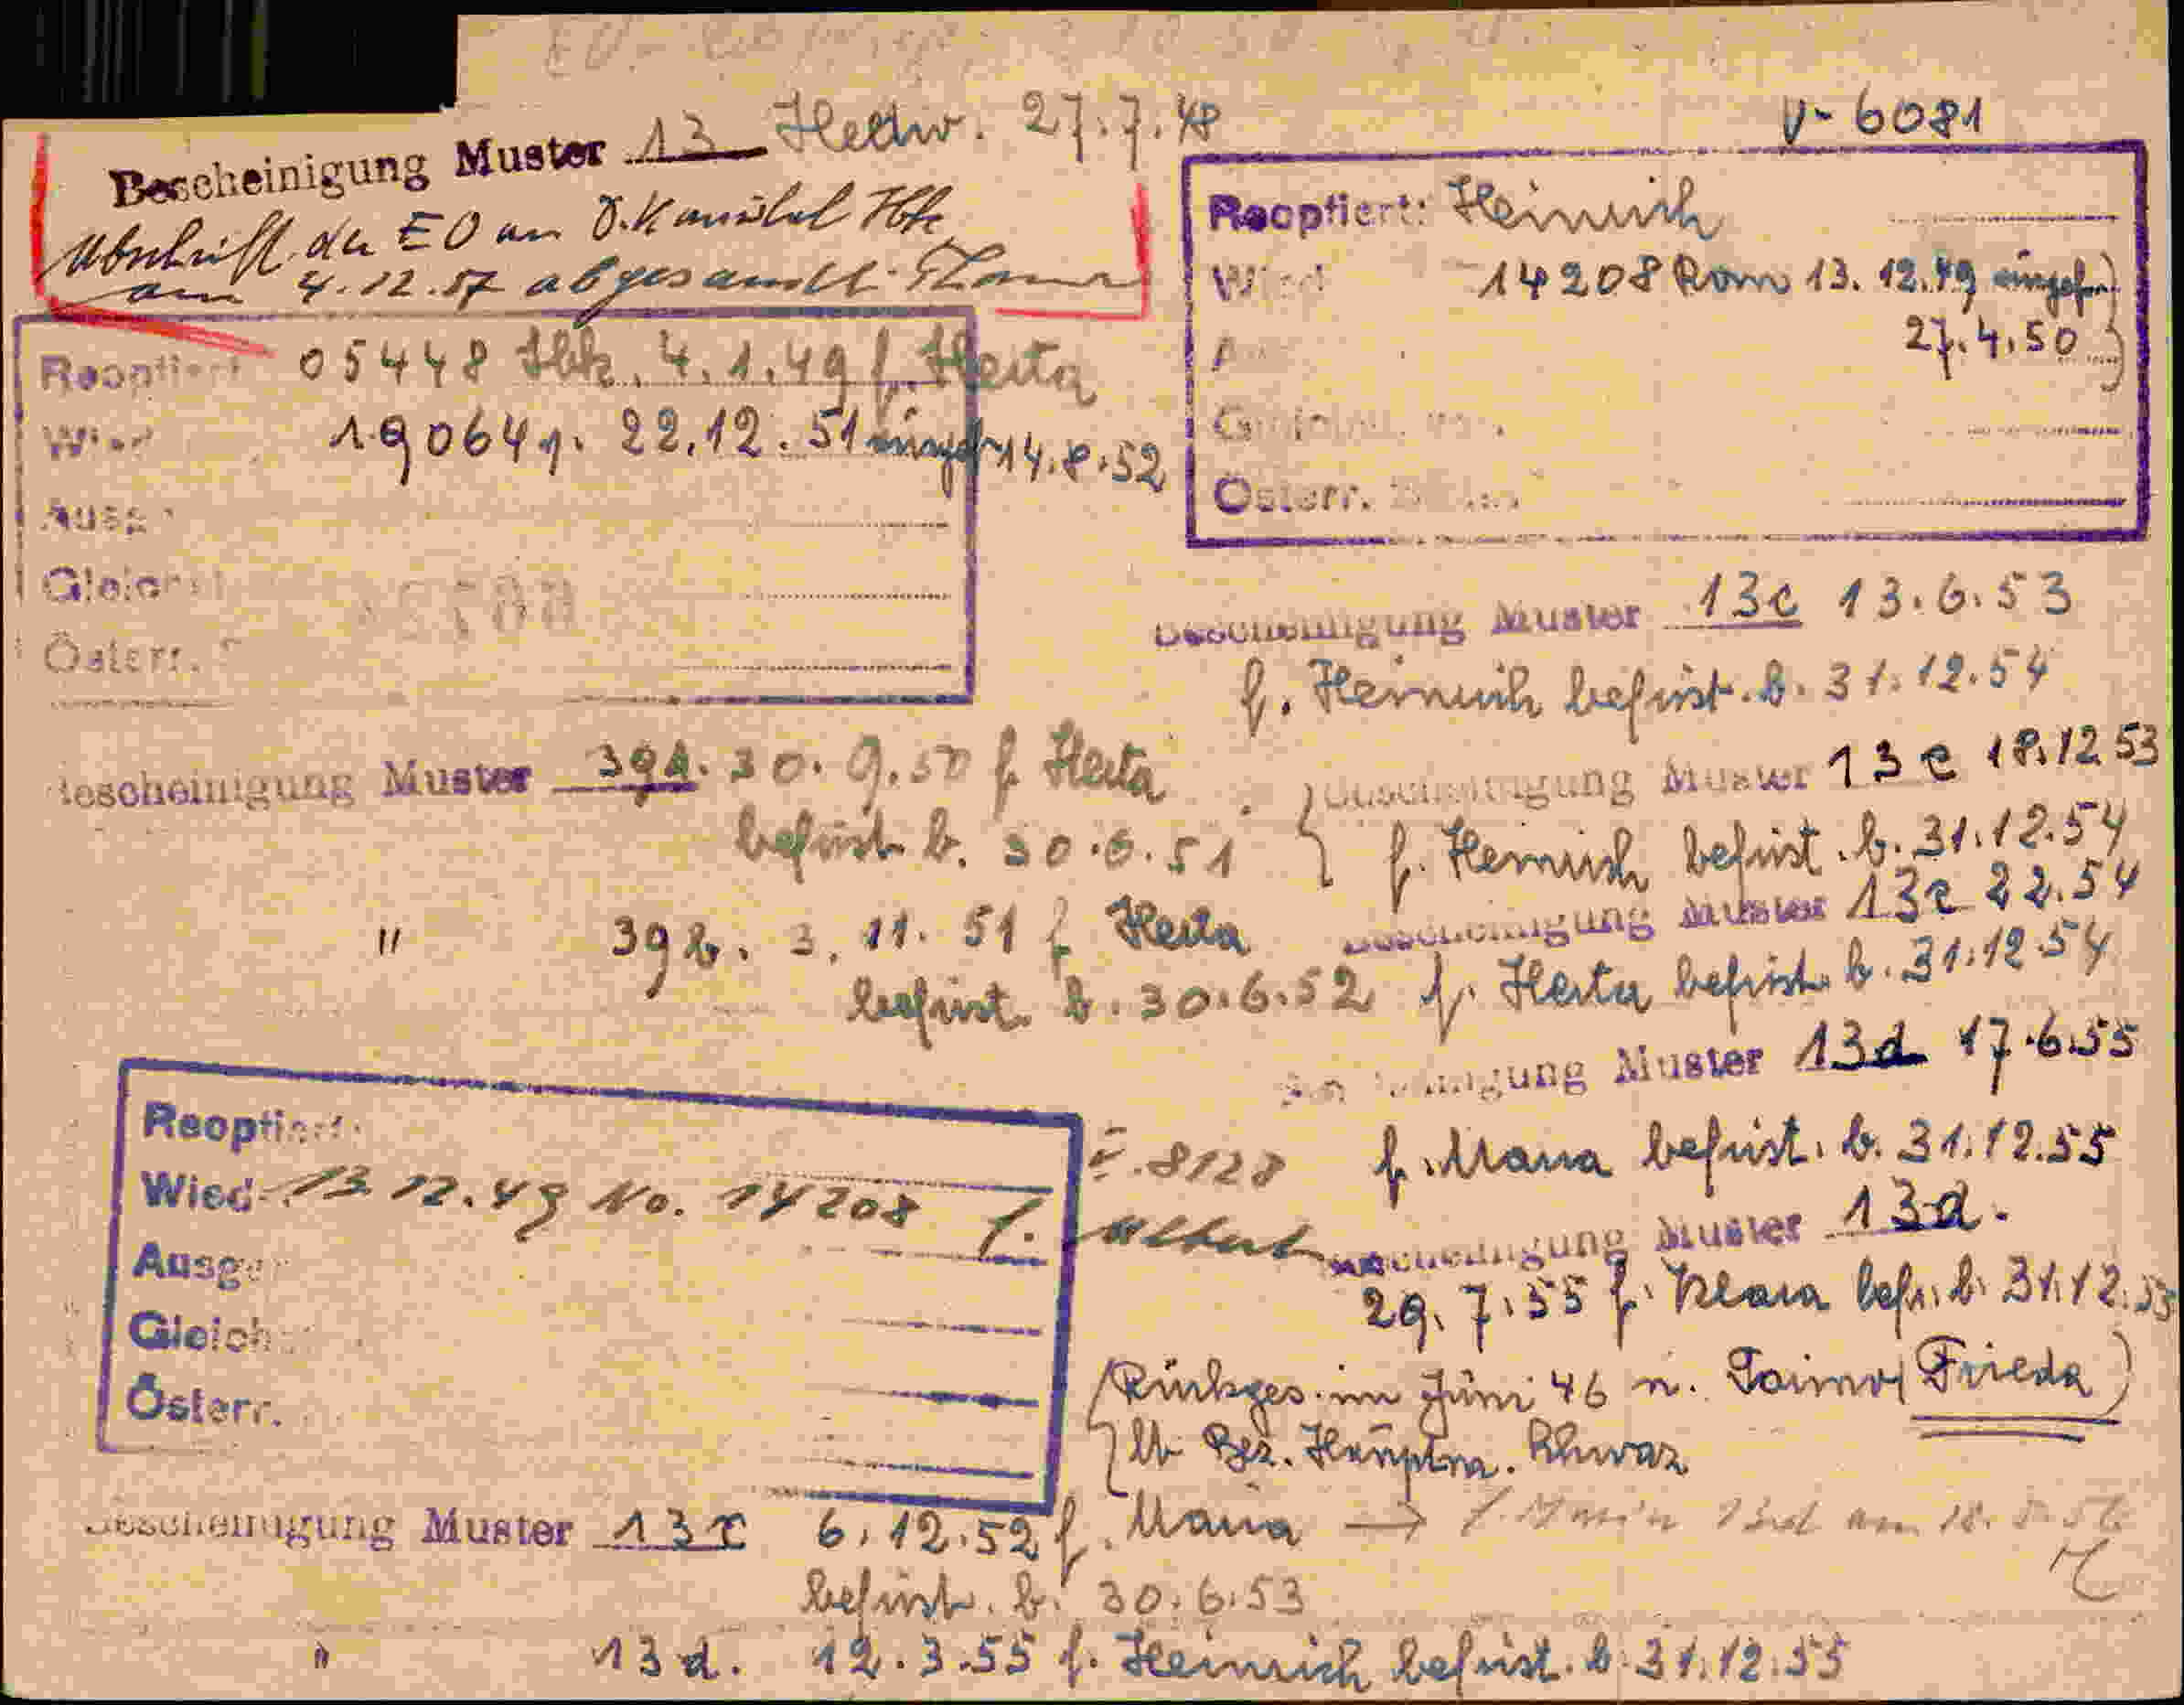 V- 6081
Bescheinigung Muster 13 Hedw. 27.7.48
Abschrift der EO an Ö. Konsulat
am 4.12.57 abgesandt.
Reoptiert 05448 Ibk. 4.1.49 f. Herta
Wied 19064 22.12.51 eingef 14.8.52
Ausg
Gleich
Österr.
Reoptiert: Heinrich
Wied 14208 Rom 13.12.49 eingef.
27.4.50
Österr.
Bescheinigung Muster 13c 13.6.53
f. Heinrich befrist. b. 31.12.54
Bescheinigung Muster 39a. 30.9.50 f Herta
befrist b. 30.6.51
Bescheinigung Muster 13c 18.12 53
f. Heinrich befrist. b. 31.12.54
" 39b. 3.11.51 f Herta
befrist. b. 30.6.52
Bescheinigung Muster 13c 22.54
f. Herta befrist. b. 31.12.54
Bescheinigung Muster 13d 17.6.55
f. Maria befrist. b. 31.12.55
Reoptiert
Wied 13.12.49 No. 14208 f. Albert
8128
Ausge
Gleich
Österr.
Bescheinigung Muster 13d.
29.7.55 f. Klara befr. b. 31.12.55
Rückges. im Juni 46 n. (Frieda)
lt Bez. Hauptm. Schwaz
Bescheinigung Muster 13c 6.12.52 f. Maria →
befrist. b. 30.6.53
" 13d. 12.3.55 f. Heinrich befrist. b. 31.12.55